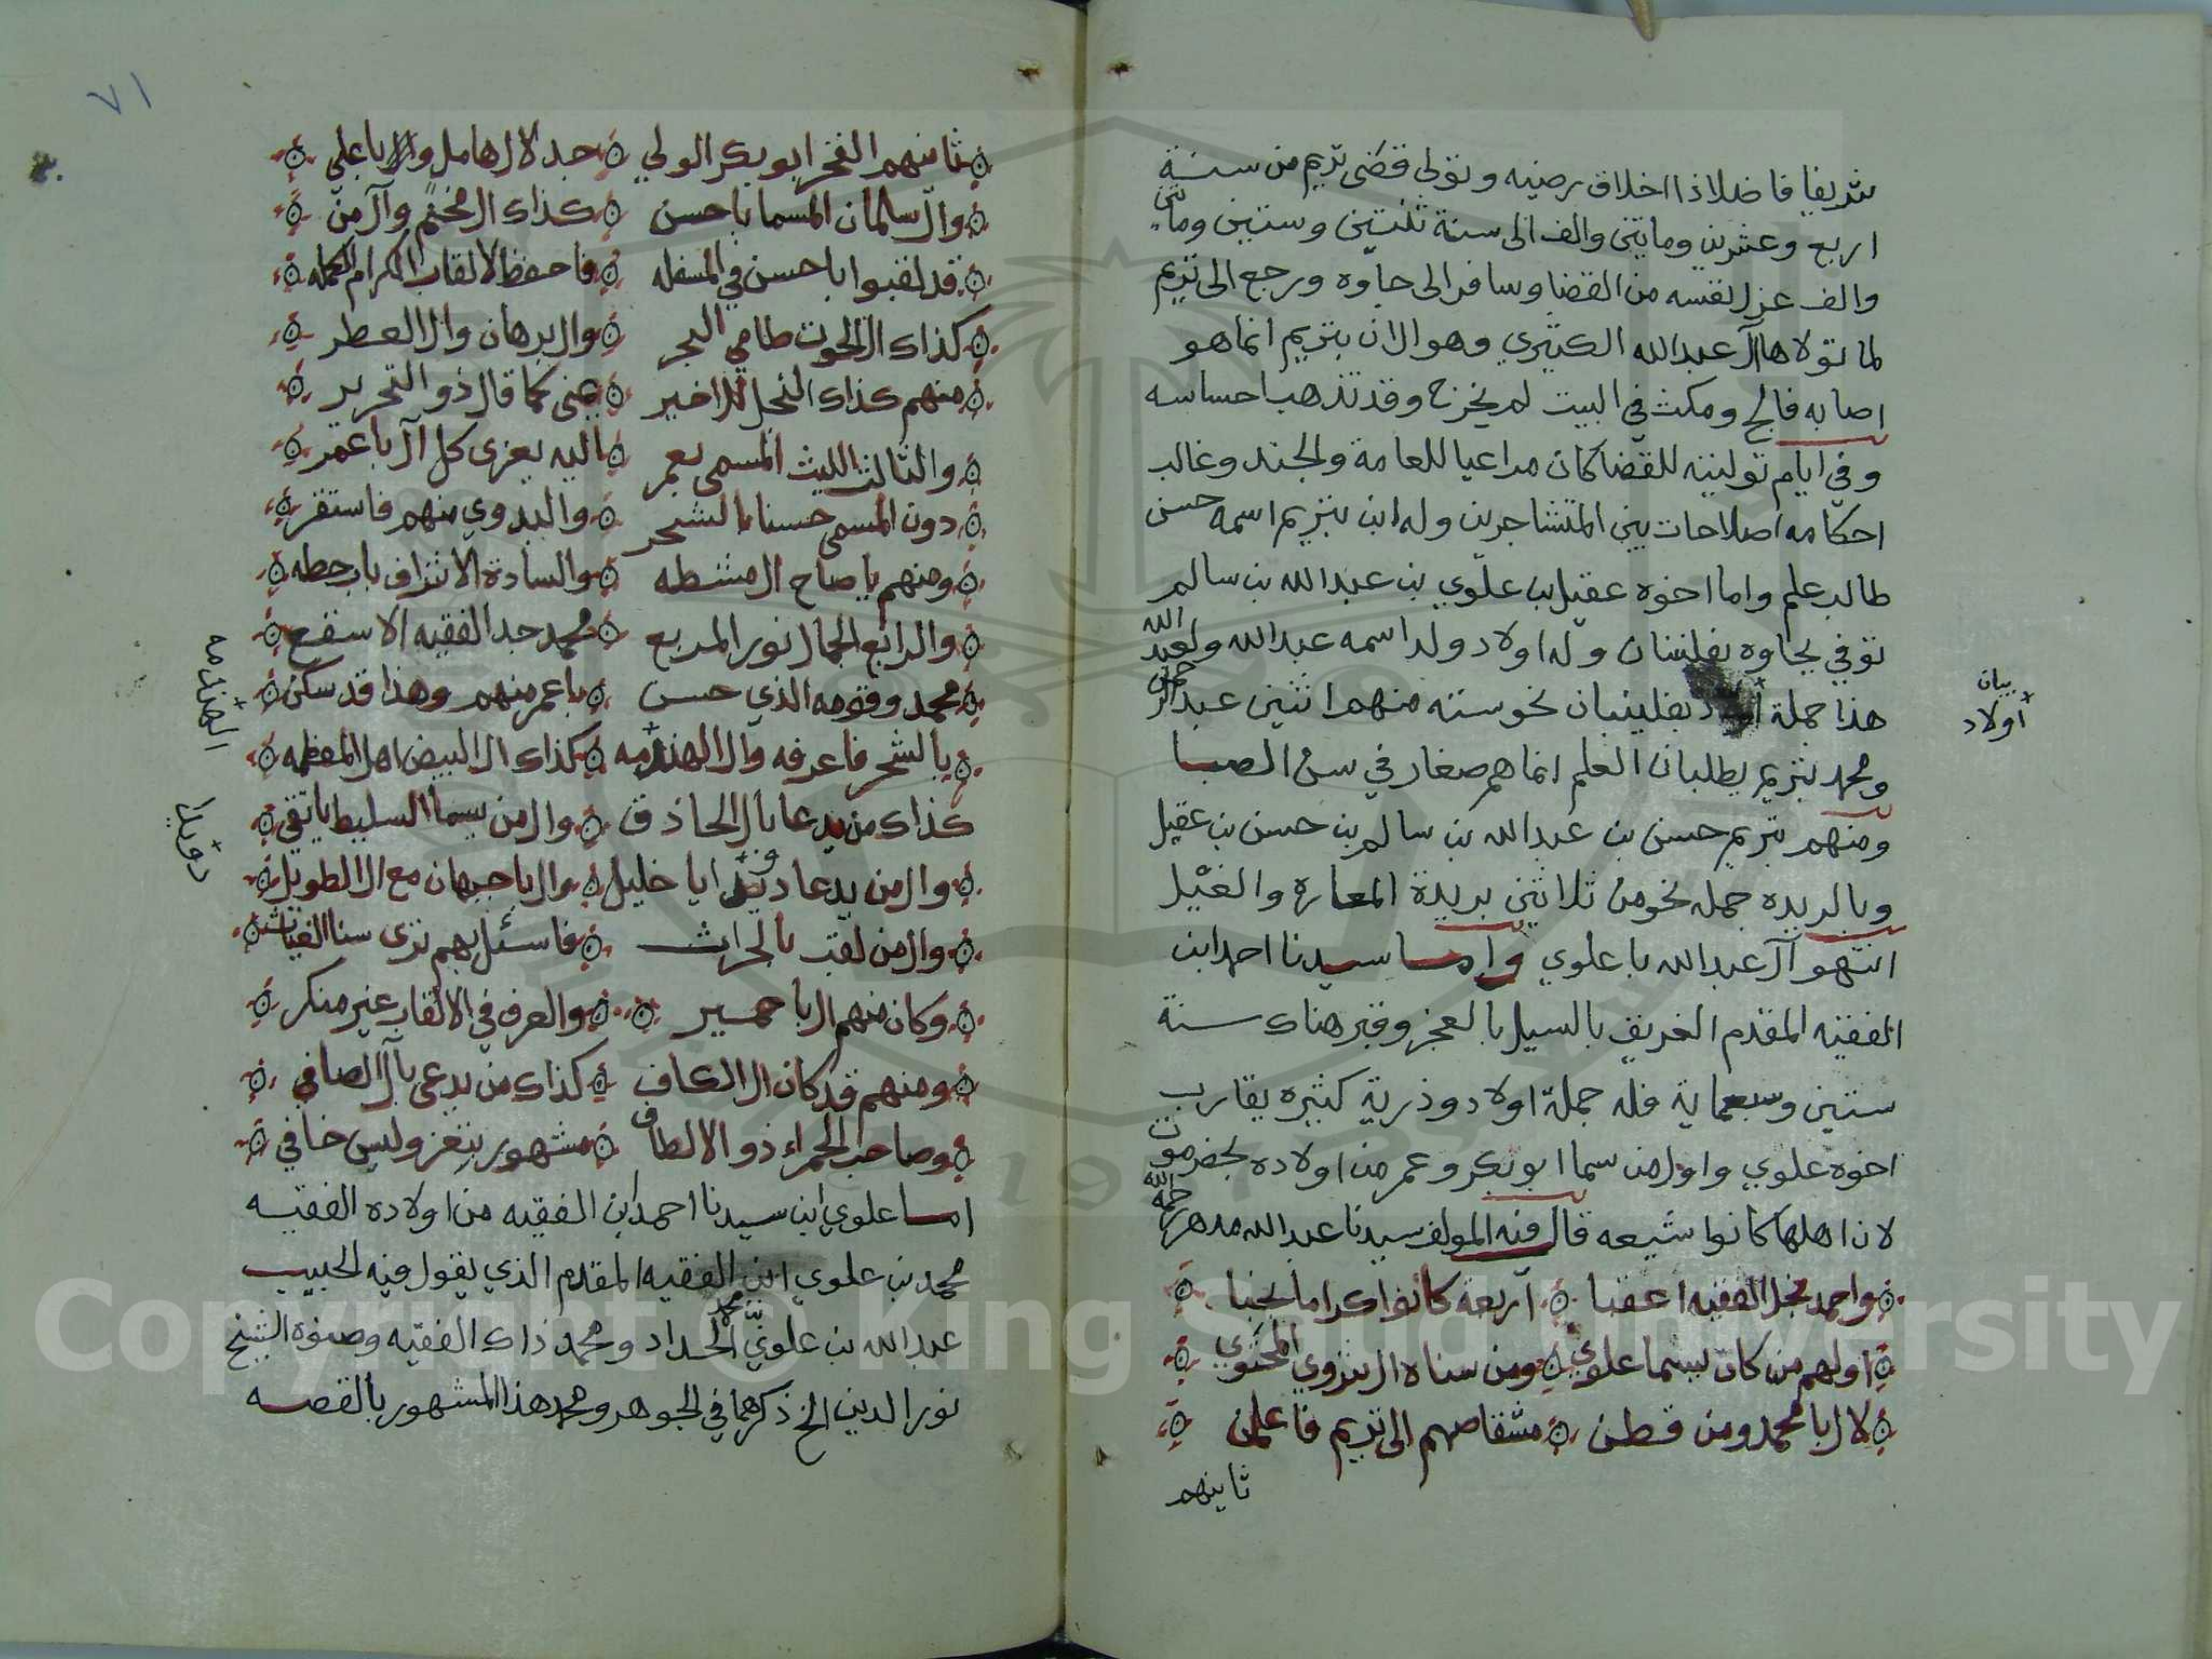 شريفا فاضلا ذا اخلاق رضيه وتولى قضى تريم من سنة
اربع وعشرين ومايتين والف الى سنة ثنتين وستين ومايتين
والف عزل نفسه من القضا وسافر الى جاوه ورجع الى تريم
لما تولاها آل عبدالله الكثيري وهو الان بتريم انما هو
اصابه فالج ومكث في البيت لم يخرج وقد تذهب احساسه
وفي ايام توليته للقضا كان مراعيا للعامة والجند وغالب
احكامه اصلاحات بين المتشاجرين وله ابن بتريم اسمه حسن
طالب علم واما اخوه عقيل بن علوي بن عبدالله بن سالم
توفي بجاوه بفلنبان وله اولاد ولد اسمه عبدالله ولعبد الله
هذا جملة اولاد بفلينبان نحو سته منهم اثنين عبدالرحمن
ومحمد بتريم يطلبان العلم انما هم صغار في سن الصبا
ومنهم بتريم حسن بن عبدالله بن سالم بن حسن بن عقيل
وبالريده جمله نحو من ثلاثين بريدة المعاره والغيل
انتهو آل عبدالله باعلوي واما سيدنا احمد ابن
الفقيه المقدم الغريق بالسيل بالعجز وقبر هناك سنة
ستين وسبعماية فله جملة اولاد وذرية كثيره يقارب
اخوه علوي واول من سما ابوبكر وعمر من اولاده بحضرموت
لان اهلها كانوا شيعه قال فيه المولف سيدنا عبدالله مدهر رحمه الله
واحمد نجل الفقيه اعقبا اربعة كانوا كراما نجبا
اولهم من كان يسما علوي ومن سناه ال بنزوي المحتوي
لال با محمد ومن قطن مشقاصهم الى تريم فاعلمن
ثانيهم
بيان
اولاد
٧١
ثانيهم الفخر ابوبكر الولي جد لال هامل وال باعلي
وال سالمان المسما باحسن كذاك ال مخنم وآل من
قد لقبوا باحسن في المسفله فاحفظ الالقاب الكرام الكمله
كذاك ال الحوت طامي البحر وال برهان وال العطر
منهم كذاك النجل للاخير عني كما قال ذو التحرير
والثالث الليث المسمى بعمر اليه يعزى كل آل باعمر
دون المسمى حسنا بالشحر والبدوي منهم فاستقر
ومنهم يا صاح ال مشطه والسادة الاشراف بابرحطه
والرابع الجمال نور المربع محمد جد الفقيه الاسقع
محمد وقومه الذي حسن باعمر منهم وهذا قد سكن
بالشحر فاعرفه وال الهندمه كذاك ال البيض اهل المعظمه
كذاك من يدعا بال الحاذق وال من يسما السليط ياتقي
وال من يدعا دويلا يا خليل وال باجبهان مع ال الطويل
وال من لقب بالحراث فاسئل بهم ترى سنا الغياث
وكان منهم ال باحمير والعرف في الالقاب غير منكر
ومنهم قد كان ال الكاف كذاك من يدعى بآل الصافي
وصاحب الحمراء ذو الالطاف مشهور بتعز وليس خافي
اما علوي ابن سيدنا احمد ابن الفقيه من اولاده الفقيه
محمد بن علوي ابن الفقيه المقدم الذي يقول فيه الحبيب
عبدالله بن علوي بن محمد الحداد ومحمد ذاك الفقيه وصنوه الشيخ
نور الدين الخ ذكرهما في الجوهر ومحمد هذا المشهور بالقصه
الهندمه
دويلا
Copyright © King Saud University
1957